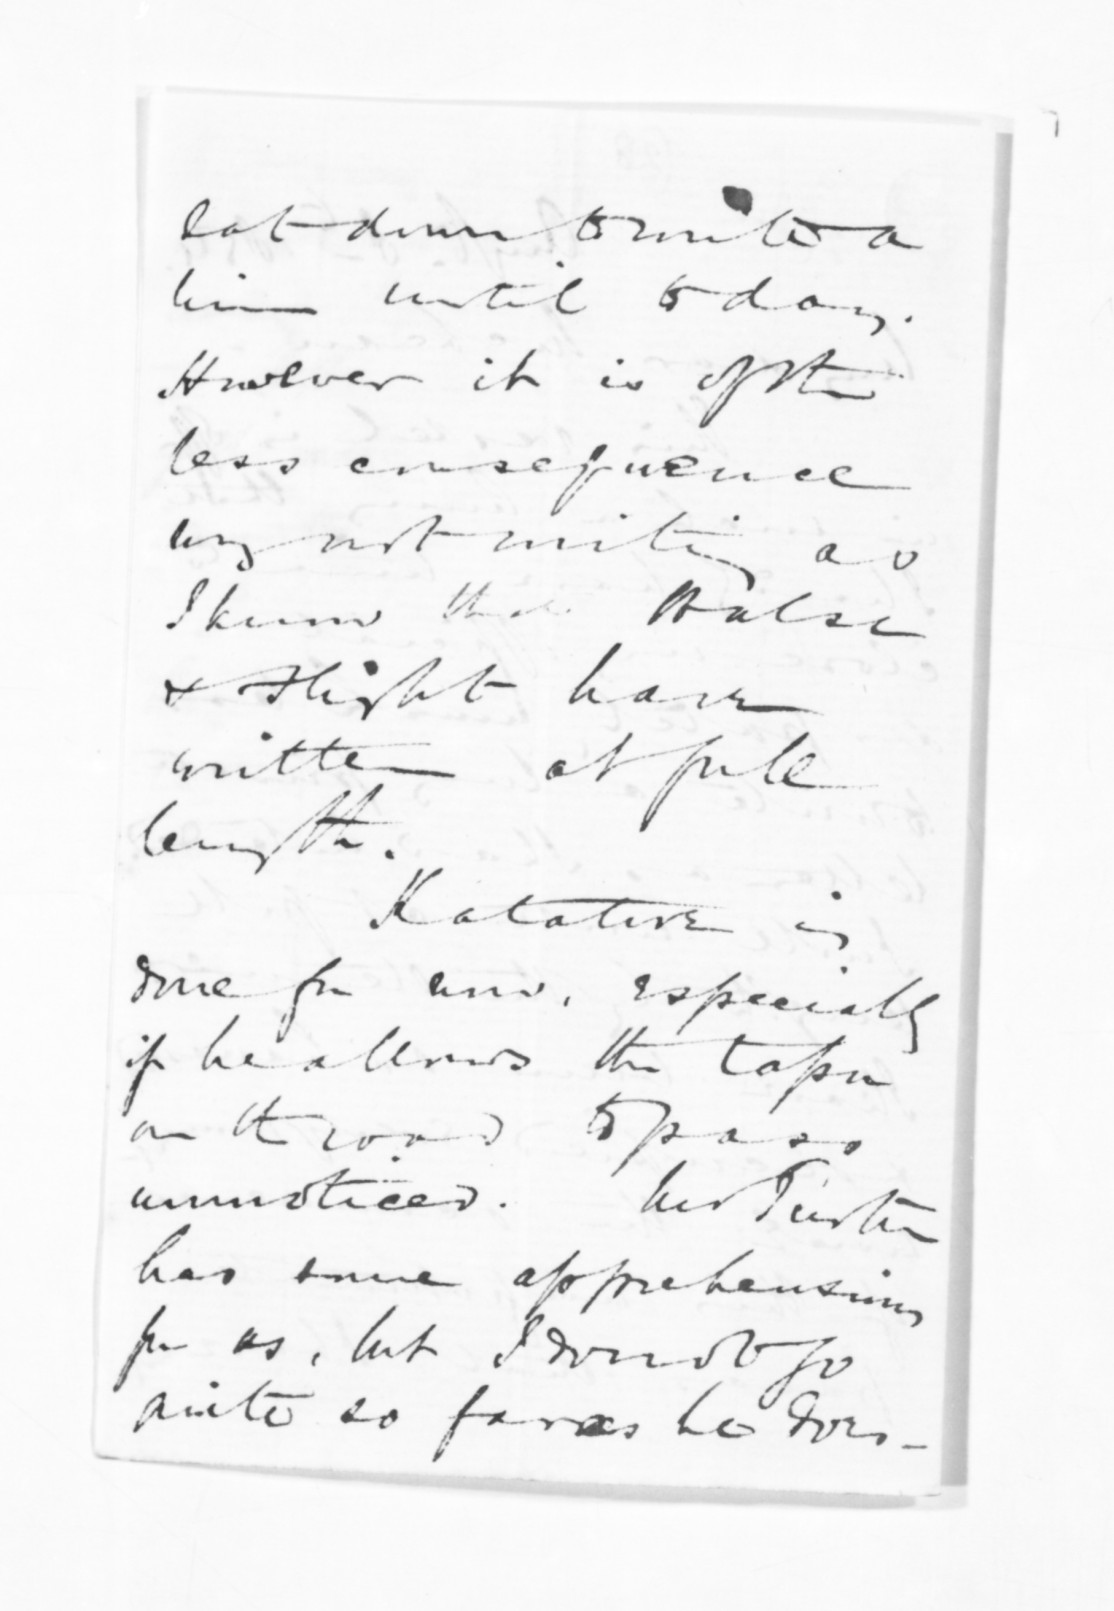 sat down to write a
line until today.
However it is of the
less consequence
my not writing as
I know that Halse
& Flight have
written at full
length.
Katatore is
done for now, especially
if he allows the tapu
on the road to pass
unnoticed. Mr Turton
has some apprehensions
for us, but I do not go
quite so far as he does -